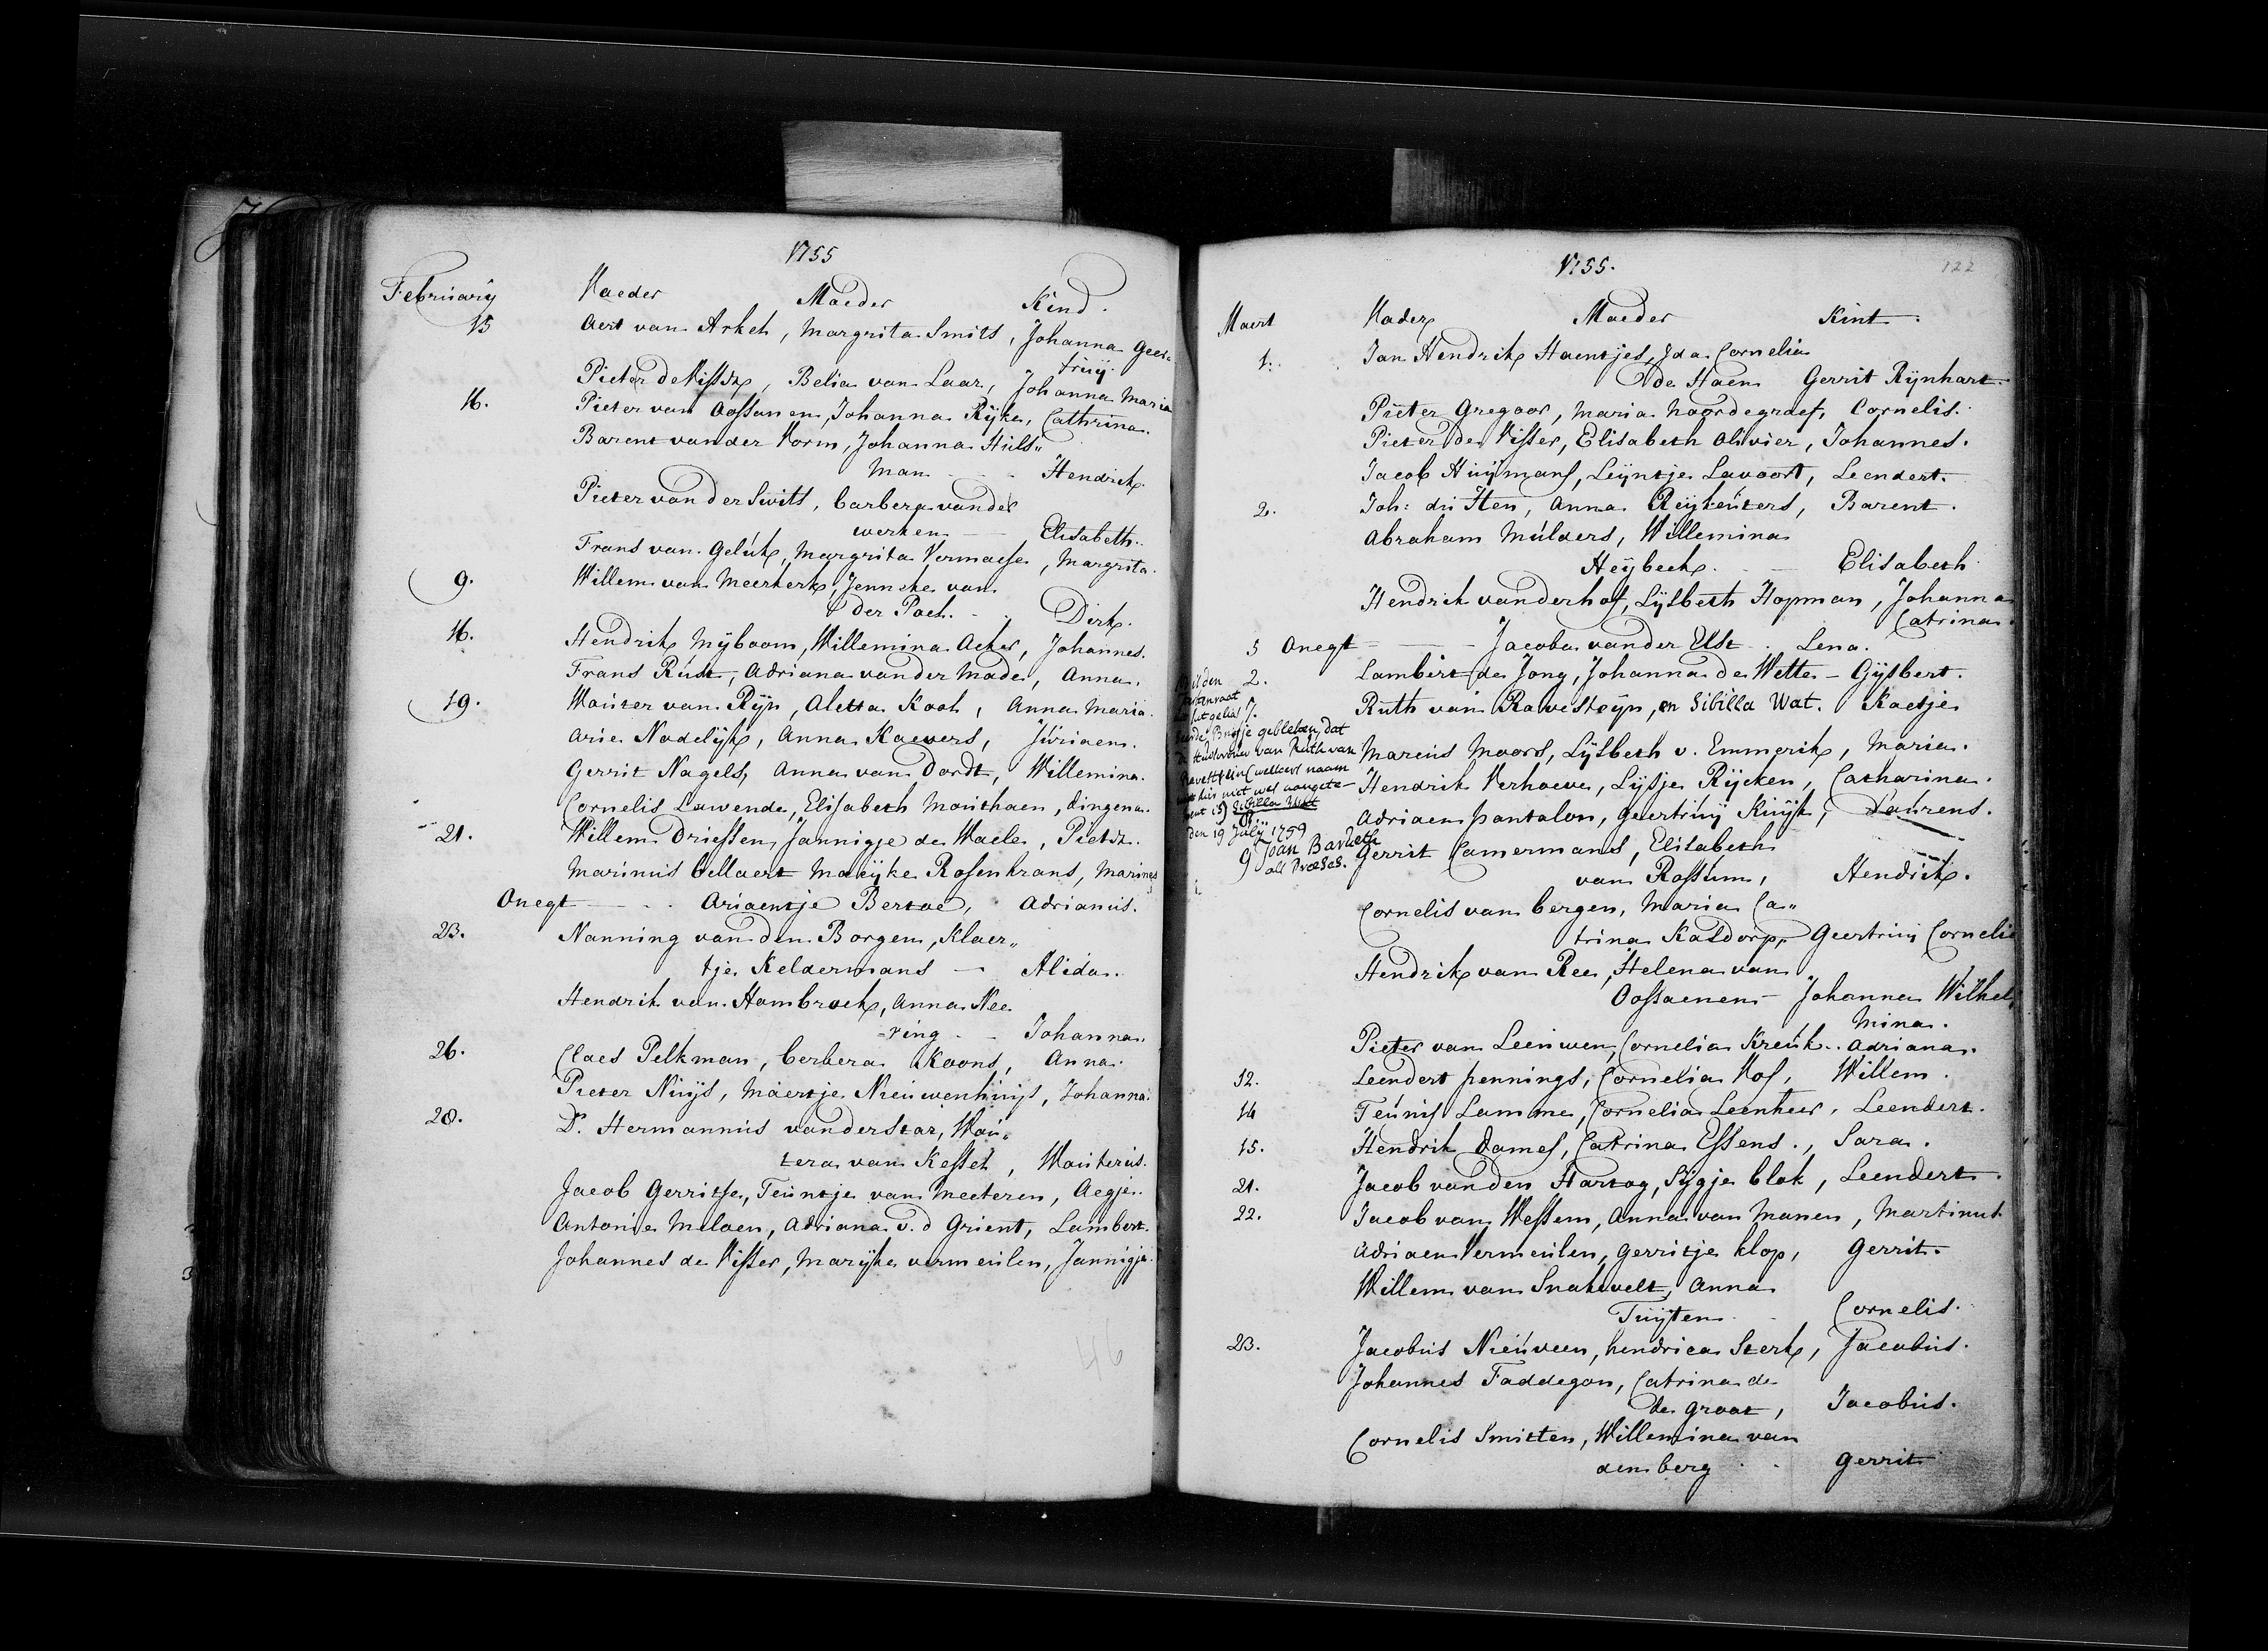 1755
February Vaeder Maeder Kind.
15 Aert van Arkel, Margrita Smits, Johanna Geer-
truij.
Pieter de Visser, Belia van Laar, Johanna Maria
16. Pieter van Oossanen, Johanna Rijke, Cathrina.
Barent vander Vorm, Johanna Huls„
man Hendrik.
Pieter van der Swits, barbera vander
werken — Elisabeth.
Frans van Gelúk, Margrita Vermaesse, Margrita.
9. Willem van Meerkerk, Jenneke van
der Poel. Dirk.
16. Hendrik Mijboom, Willemina Acker, Johannes.
Frans Rúst, Adriana vander Made, Anna.
19. Wouter van Rijn, Aletta Kool, Anna Maria.
Arie Nadelijk, Anna Kaevers, Júriaen.
Gerrit Nagels, Anna van Dordt, Willemina.
Cornelis Lawende, Elisabeth Mouthaen, dingena.
21. Willem Driessen, Jannigje de Waele, Pieter.
Marinus bellaert Maeijke Rosenkrans, Marines
Onegt — Ariaentje Bertoe, Adrianus.
23. Nanning van den Borgen, Klaer„
tje Keldermans — Alida.
Hendrik van Hambroek, Anna Nee
=ring — Johanna.
26. Claes Pelkman, berbera Koons, Anna.
Pieter Nuijs, Maertje Nieuwenhuijs, Johanna.
28. Ds. Hermannus vander Star, Wou„
tera van Kessel, Wouterus.
Jacob Gerritse, Teuntje van Meeteren, Aegje.
Antonie Meloen, Adriana v. d Grient, Lambert.
Johannes de Visser, Marijke vermeulen, Jannigje.
46
1755.
122
Maert Vader Maeder Kint.
1. Jan Hendrik Haentjes, Ida Cornelia
de Haen Gerrit Rijnhart.
Pieter Gregoor, Maria Noordegraef, Cornelis.
Pieter de Visser, Elisabeth Olivier, Johannes.
Jacob Huijmans, Leijntje Lavoort, Leendert.
2. Joh: du Sten, Anna Reijkeúters, Barent.
Abraham Múlders, Willemina
Heijbeek. — Elisabeth.
Hendrik vanderhof, Lijsbeth Hopman, Johanna
Catrina.
5 Onegt — Jacoba vander Elst. Lena.
2. Lambert de Jong, Johanna de Wette — Gijsbert.
Ruth van Ravesteijn, en Sibilla Wat. Kaetje
Marcus Moors, Lijsbeth v. Emmerik, Maria.
Hendrik Verhoeve, Lijsje Rijcken, Catharina.
Adriaen pantalon, Geertruij Kuijk, Laúrens.
gebleken, dat
de Huisvrouw van Ruth van
Ravesteijn (welkers naam
hier niet wel aangete-
kent is) Sibilla Wat
den 19 Julij 1759
Joan Barueth
als Præses.
Gerrit Camermans, Elisabeth
van Rossum, Hendrik.
Cornelis van bergen, Maria Ca„
trina Kaldorp, Geertruij Cornelia
Hendrik van Ree, Helena van
Oossaenen — Johanna Wilhel
mina.
Pieter van Leeuwen, Cornelia Kreúk. Adriana.
12. Leendert pennings, Cornelia Vos, Willem.
14 Teúnis Lamme, Cornelia Leenheer, Leendert.
15. Hendrik Dames, Catrina Essens., Sara.
21. Jacob vanden Hartog, Sijgje blok, Leendert.
22. Jacob van Wessem, Anna van Manen, Martinus.
Adriaen Vermeulen, Gerritje klop, Gerrit.
Willem van Snakevelt, Anna
Tuijten Cornelis.
23. Jacobus Nieúveen, hendrica Sterk, Jacobus.
Johannes Faddegon, Catrina de
de groot, Jacobus.
Cornelis Smitten, Willemina van
den berg . . gerrit